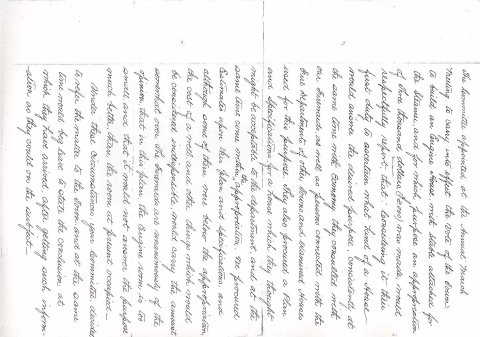 The Committee appointed at the Annual March
Meeting to carry into effect the vote of the Town
to build an Engine House with Stable attached for
the Steamer, and for which purpose an appropriation
of five thousand dollars (5000) was made, would
respectfully report, that: Considering it their
first duty to ascertain what kind of a House
would answer the desired purpose, Consulting at
the same time with Economy they consulted with
our firewards as well as persons connected with the
fire departments of other Towns and examined Houses
used for this purpose they also procured a Plan
and specifications for a House which they thought
might be acceptable to the department and at the
same time come within the appropriation. We procured
Estimates upon this plan and specifications and
although some of them were below the appropriation,
the cost of a well and other things which would
be considered indispensible, would carry the amount
somewhat over. The firewards are unanimously of the
opinion, that in this plan the Engine room is too
small and that it would not answer the purpose
much better, than the room at present occupied.
Under these circumstances your Committee decided
to refer the matter to the Town and at the same
time would beg leave to state the conclusion at
which they have arrived, after getting such inform-
ation as they could on the subject—